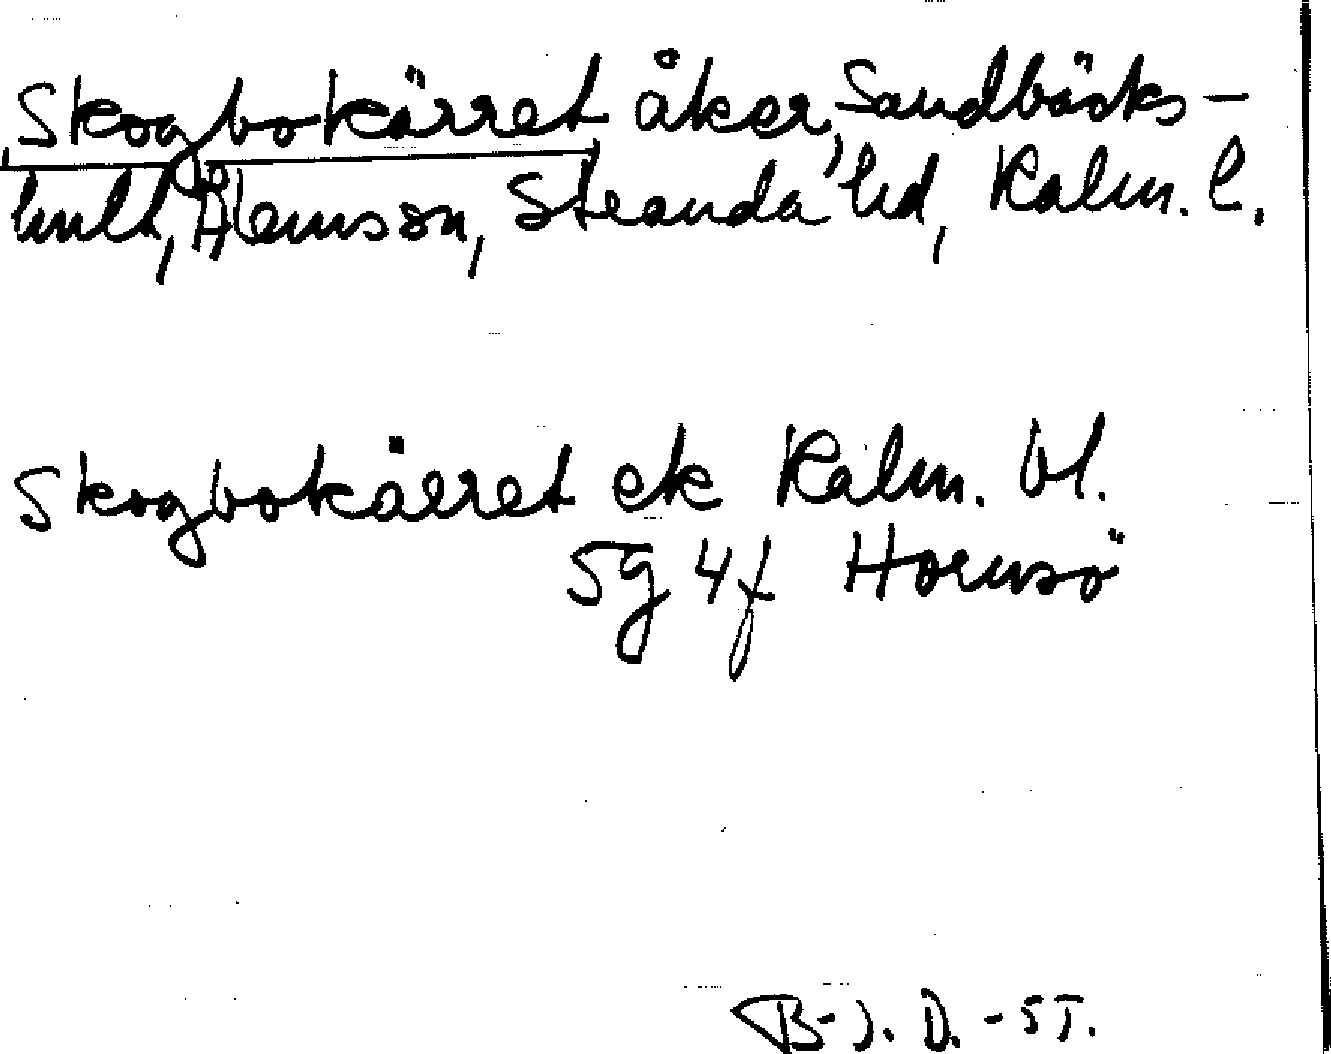 Skogbokärret åker, Sandbäcks-
hult, Ålems sn, Stranda hd, Kalm. l.
Skogbokärret ek Kalm. bl.
5g 4f Hornsö
B-J. D. -57.